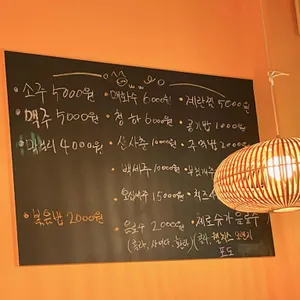 소주 5000원
맥주 5000원
4000원
볶음밥 2000원
매화수 6000원
청하 6000원
산사춘 10000원
백세주 10000원
15000원
음료수 2000원
(콜라, 사이다, 환타)
계란찜 5000원
공기밥 1000원
제로슈가음료수
(콜라, 웰치스 오렌지
포도